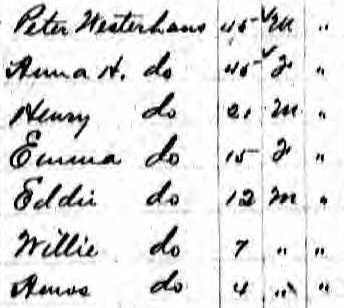 Peter Westerhaus 45 ✓ M "
Anna H. do 45 ✓ F "
Henry do 21 M "
Emma do 15 F "
Eddie do 12 M "
Willie do 7 " "
Amos do 4 " "